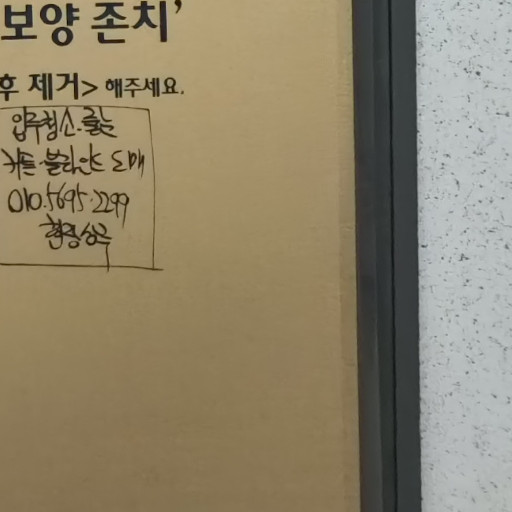 보양 존치’
후 제거> 해주세요.
입주청소.줄눈
커튼·블라인드 도매
010.5695.2299
현장상주